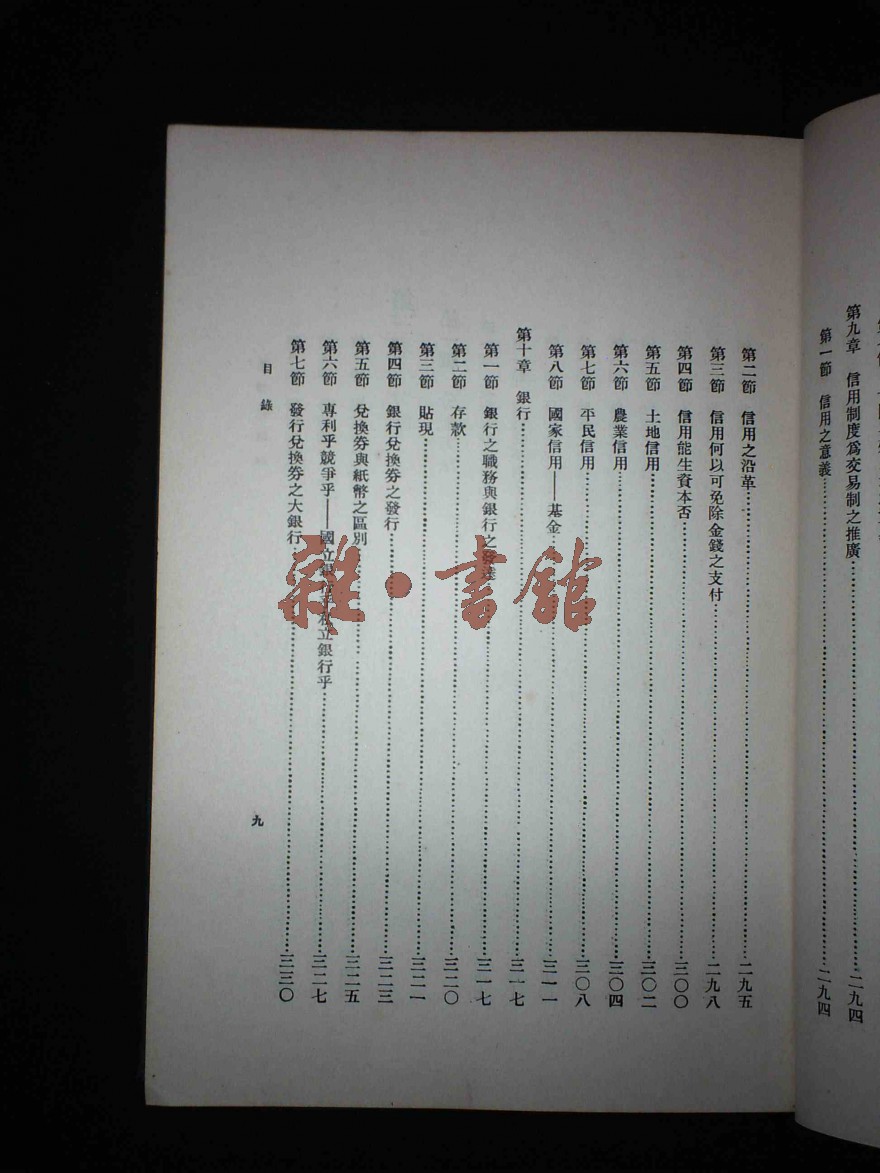 第九章 信用制度爲交易制之推廣……二九四
第一節 信用之意義……二九四
第二節 信用之沿革……二九五
第三節 信用何以可免除金錢之支付……二九八
第四節 信用能生資本否……三〇〇
第五節 土地信用……三〇二
第六節 農業信用……三〇四
第七節 平民信用……三〇八
第八節 國家信用——基金……三一一
第十章 銀行……三一七
第一節 銀行之職務與銀行之發達……三一七
第二節 存款……三二〇
第三節 貼現……三二一
第四節 銀行兌換券之發行……三二三
第五節 兌換券與紙幣之區別……三二五
第六節 專利乎競爭乎——國立銀行乎私立銀行乎……三二七
第七節 發行兌換券之大銀行……三三〇
目錄
九
雜·書館